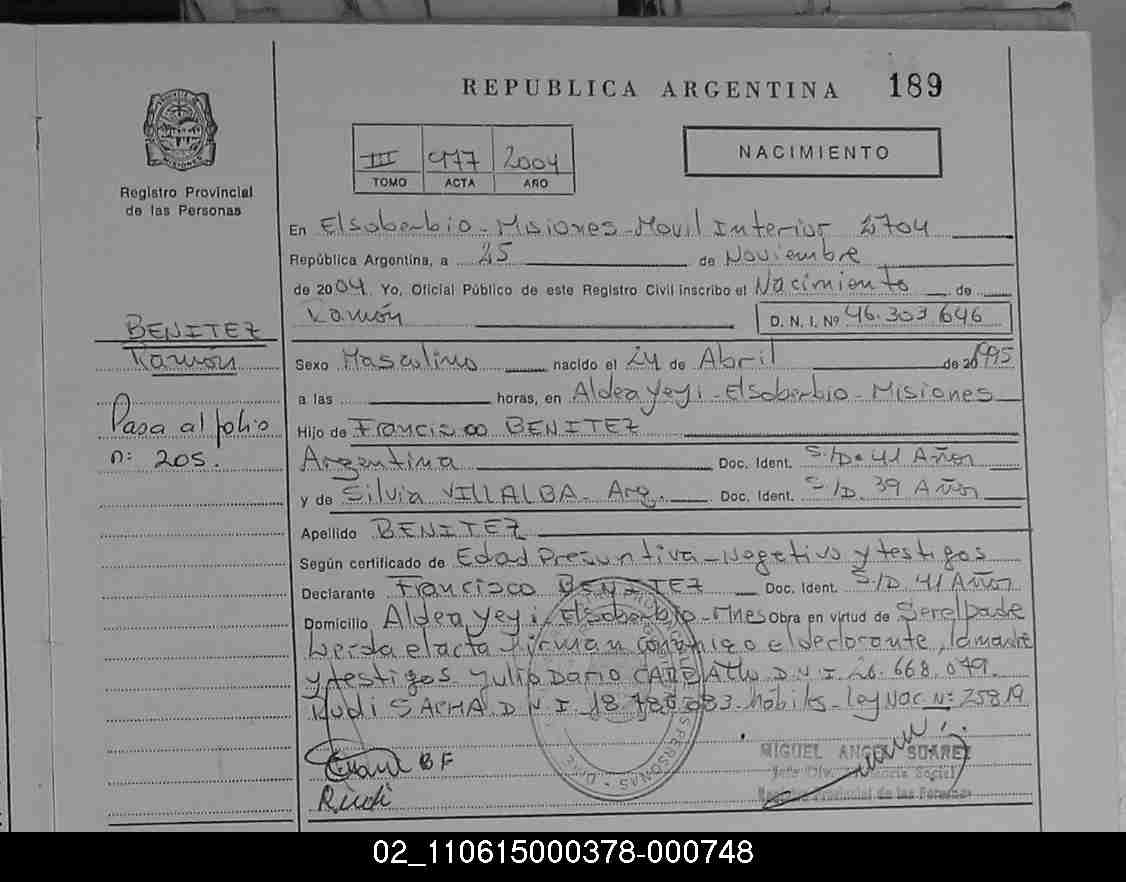 REPUBLICA ARGENTINA 189
Registro Provincial
de las Personas
III 477 2004
TOMO ACTA AÑO
NACIMIENTO
En Elsoberbio - Misiones - Movil Interior 2704
República Argentina, a 25 de Noviembre
de 2004. Yo, Oficial Público de este Registro Civil inscribo el Nacimiento de
Ramón D. N. I. Nº 46.303.646
BENITEZ
Ramón
Sexo Masculino nacido el 24 de Abril de 1995
a las horas, en Aldea Yeyi - Elsoberbio - Misiones
Pasa al folio
n: 205.
Hijo de Francisco BENITEZ
Argentina Doc. Ident. S/D. 41 Años
y de Silvia VILLALBA - Arg. Doc. Ident. S/D. 39 Años
Apellido BENITEZ
Según certificado de Edad Presuntiva - Negativo y testigos
Declarante Francisco BENITEZ Doc. Ident. S/D. 41 Años
Domicilio Aldea Yeyi, Elsoberbio - Mnes Obra en virtud de Ser el padre
Leida el acta firman conmigo el declarante, la madre
y testigos Julio Dario D N I. 26.668.079.
Rudi SACHA D N I. 18. hábiles - Ley NAC. Nº 25819
BF
Rudi
MIGUEL ANGEL SUAREZ
Registro Provincial de las Personas
02_110615000378-000748